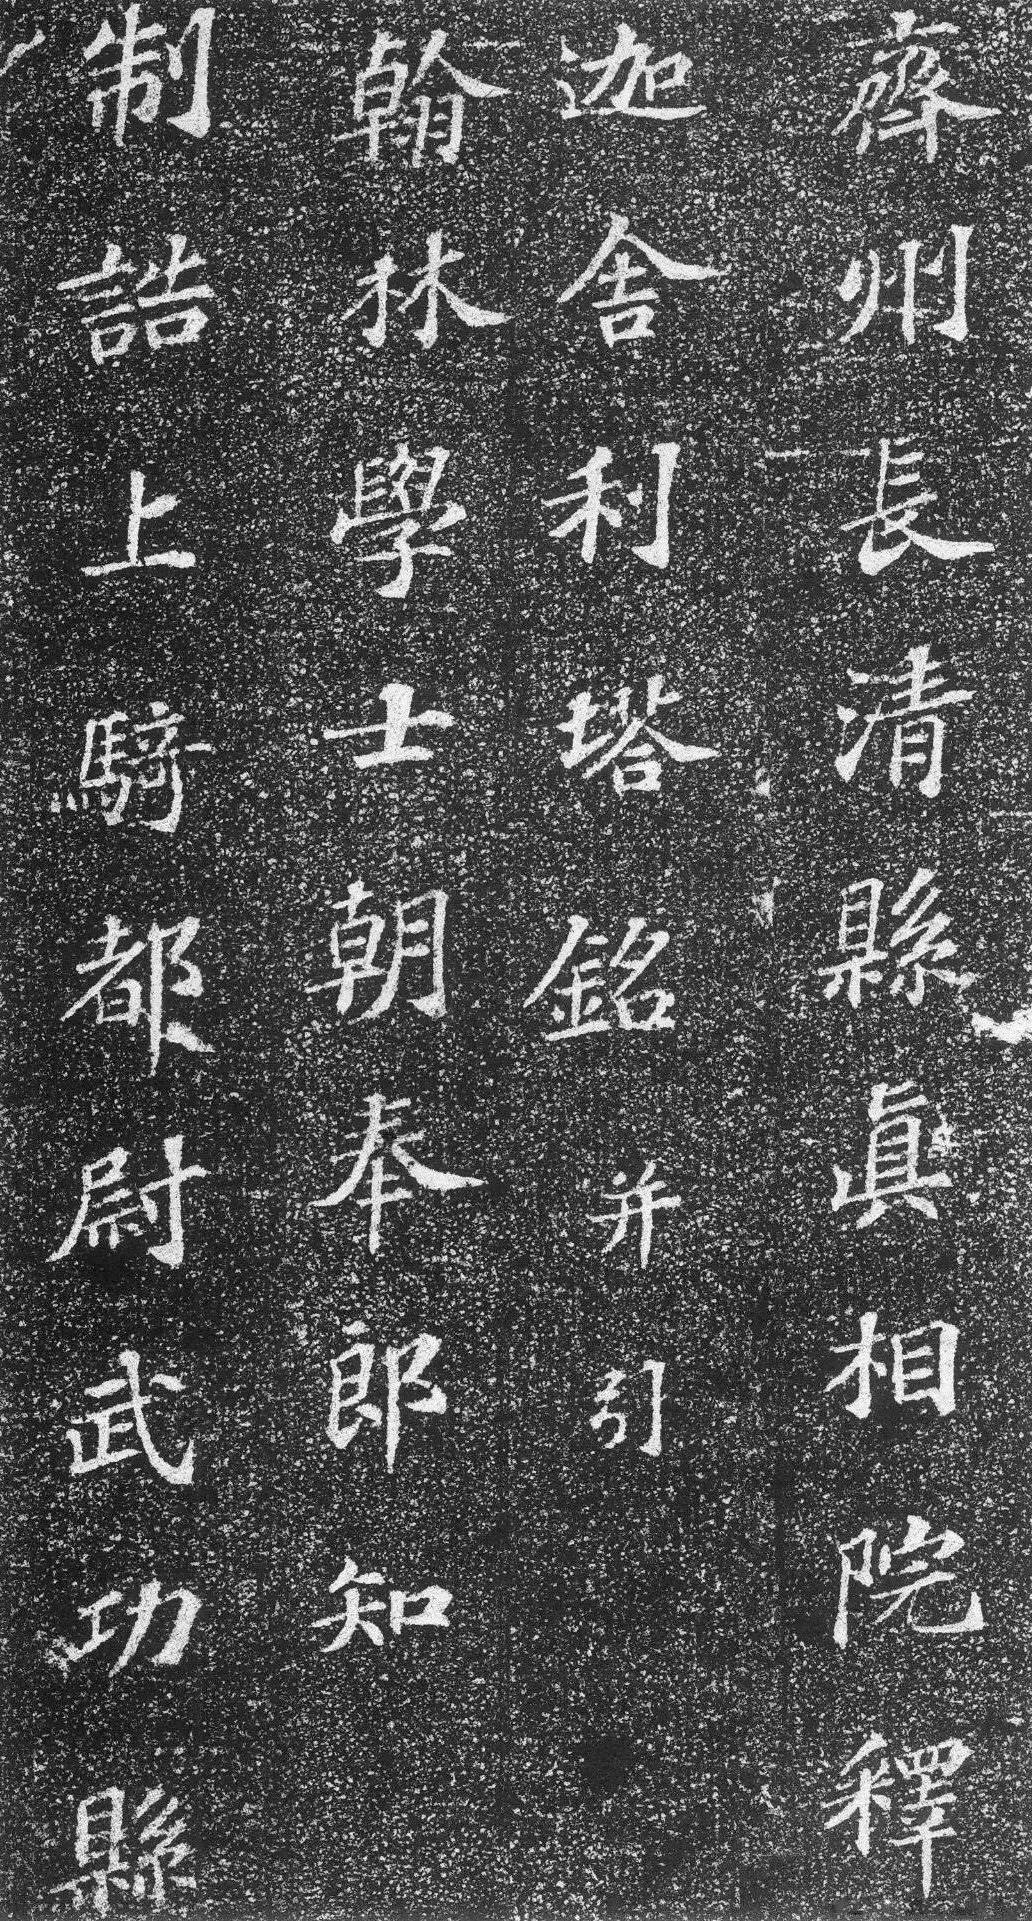 齊州長清縣眞相院釋
迦舍利塔銘并引
翰林學士朝奉郎知
制誥上騎都尉武功縣